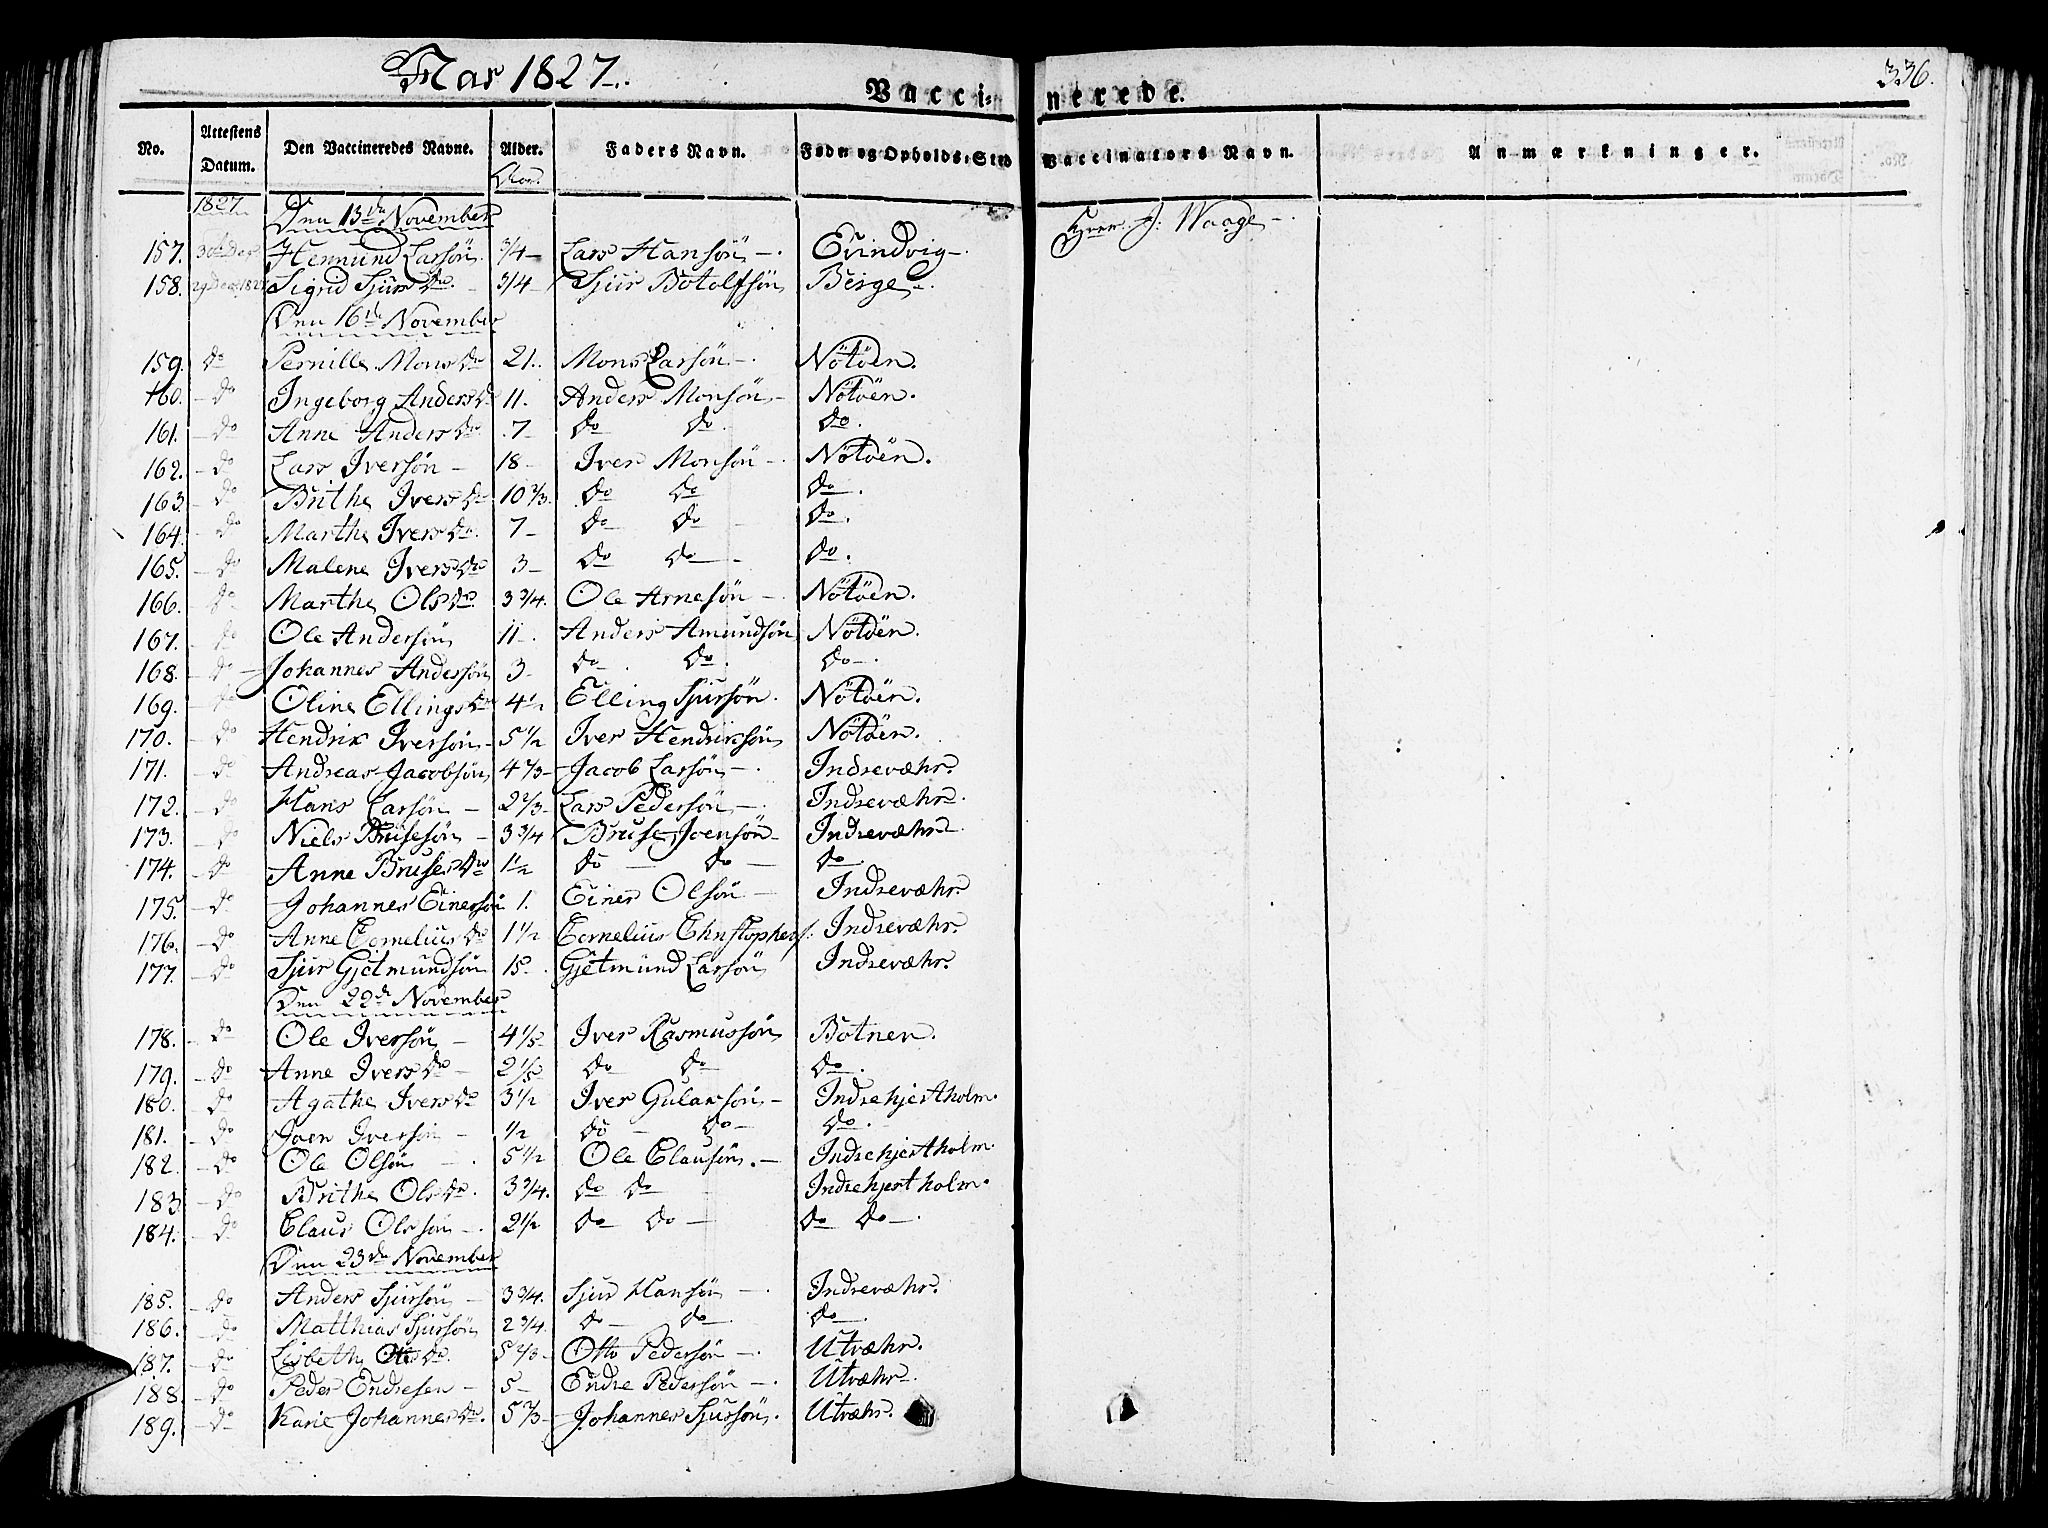 Aar 1827.
336.
Vaccinerede.
No. Attestens Datum. Den Vaccineredes Navne. Alder. Faders Navn. Føde- og Opholds-Sted Vaccinators Navn. Anmærkninger.
Aar.
1827 Den 13de November Herr J: Waage -.
157. Hermund Larsön 3/4 - Lars Hansön -. Evindvig -.
158. 29 Dec. Sigrid Sjursdr. 3/4 - Sjur Botolfsön Berge -.
Den 16de November
159. do Pernille Monsdr 21. Mons Larsön -. Nötöen.
160. - do Ingeborg Andersdr 11. Anders Monsön - Nötöen.
161. - do Anne Andersdr. 7 - do do. do.
162. - do Lars Iversön - 18 - Iver Monsön -. Nötöen.
163. - do Brithe Iversdr 10 2/3. do do do.
164. - do Marthe Iversdr. 7 - do do - do.
165. - do Malene Iversdr 3 - do do - do.
166. - do Marthe Olsdr. 3 3/4. Ole Arnesön -. Nötöen.
167. - do Ole Andersön 11 -. Anders Amundsön Nötöen.
168. - do - Johannes Andersön 3 - do -. do. do -.
169. - do Oline Ellingsdr 4 1/2 Elling Sjursön. Nötöen.
170. - do Hendrik Iversön - 5 1/2 Iver Hendriksön Nötöen.
171. - do Andreas Jacobsön 4 2/3 - Jacob Larsön -. Indrevæhr.
172. - do Hans Larsön - 2 2/3 - Lars Pedersön -. Indrevæhr.
173. - do Niels Brusesön - 3 3/4 Bruse Joensön - Indrevæhr.
174. - do Anne Brusesdr 1 1/2 do - do - do.
175. - do Johannes Einersön 1. Einer Olsön - Indrevæhr.
176. - do Anne Corneliusdr 1 1/2 Cornelius Christophers: Indrevæhr.
177. - do Sjur Gjetmundsön 15 -. Gjetmund Larsön Indrevæhr.
Den 22de November
178. - do Ole Iversön - 4 1/5 Iver Rasmussön Botnen.
179. - do Anne Iversdr - 2 1/5 do do - do.
180. - do Agathe Iversdr 3 1/2 Iver Gulaksön - Indrehjertholm.
181. - do Joen Iversön - 1/2 do - do - do.
182. - do Ole Olsön -. 5 1/2 Ole Clausön. - Indrehjertholm.
183. - do Brithe Olsdr. 3 3/4. do do - Indrehjertholm.
184. - do Claus Olsson -. 2 1/2 do do - do do -.
Den 23de November
185. - do Anders Sjursön - 3 3/4. Sjur Hansön -. Indrevæhr.
186. - do Matthias Sjursön 2 3/4. do - do -. do -.
187. - do Lisbeth Ottosdr. Otto Pedersön -. Utvæhr.
188 - do Peder Endresen - 5 - Endre Pedersön -. Utvæhr -.
189. - do Karie Johannesdr. 5 2/3 - Johannes Sjursön. Utvæhr.